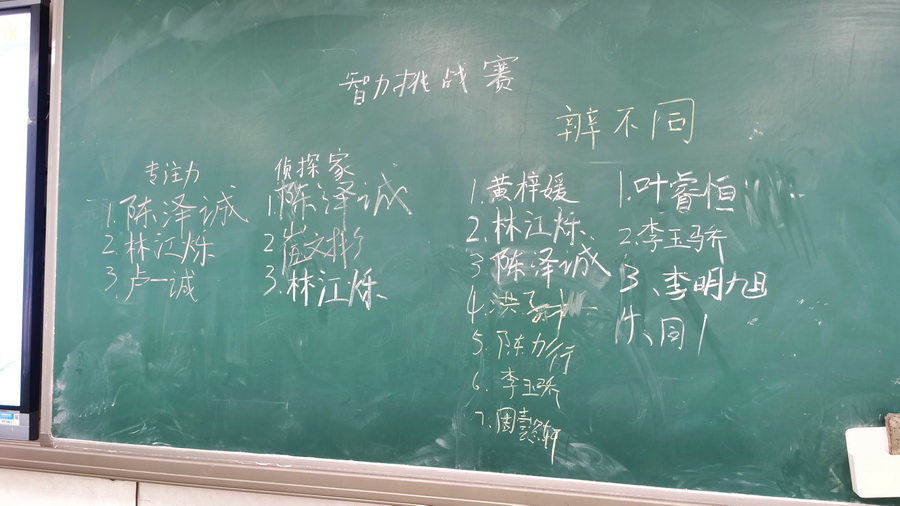 智力挑战赛
辨不同
专注力
1.陈泽诚
2.林江烁
3.卢一诚
侦探家
1.陈泽诚
2.崔文彬
3.林江烁
1.黄梓媛
2.林江烁
3.陈泽诚
4.洪子
5.陈力行
6.李玉骄
7.周懿轩
1.叶睿恒
2.李玉骄
3、李明旭
4、同1